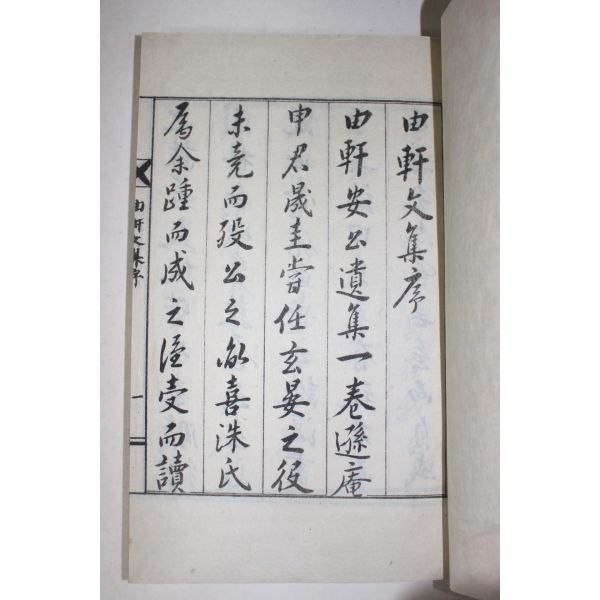 由軒文集序
由軒安公遺集一卷遜庵
申君晟圭嘗任玄晏之役
未竟而歿公之胤喜洙氏
屬余踵而成之謹受而讀
由軒文集序
一